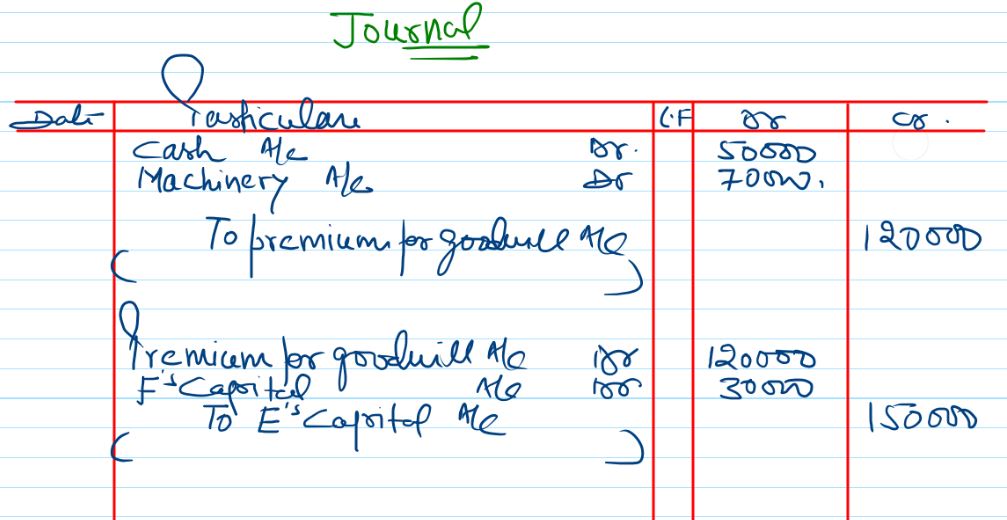 Journal
Date Particulars L.F Dr Cr.
Cash A/c Dr. 50000
Machinery A/c Dr 70000.
To premium for goodwill A/c 120000
( )
Premium for goodwill A/c Dr 120000
F's Capital A/c Dr 30000
To E's Capital A/c 150000
( )